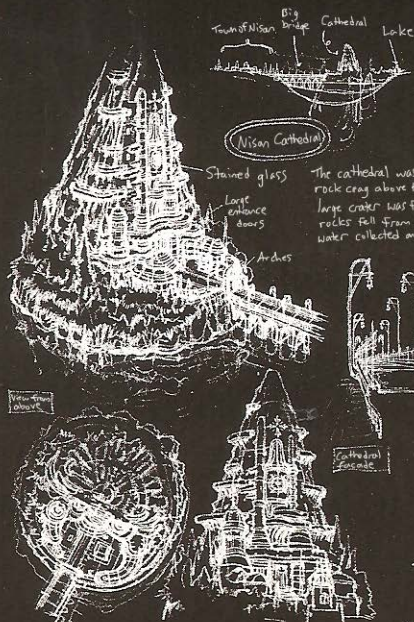 Big
bridge
Town of Nisan
Cathedral
Lake
Nisan Cathedral
Stained glass
Large
entrance
doors
Arches
The cathedral was
rock crag above t
large crater was f
rocks fell from
water collected a
View from
above
Cathedral
facade